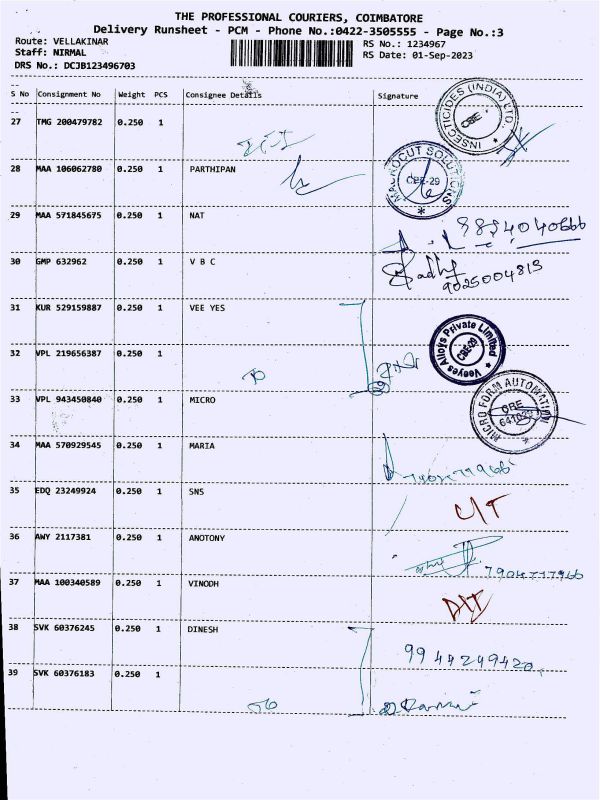 THE PROFESSIONAL COURIERS, COIMBATORE
Delivery Runsheet - PCM - Phone No.:0422-3505555 - Page No.:3
Route: VELLAKINAR RS No.: 1234967
Staff: NIRMAL RS Date: 01-Sep-2023
DRS No.: DCJB123496703
S No Consignment No Weight PCS Consignee Details Signature
27 TMG 200479782 0.250 1
INSECTICIDES (INDIA) LTD. CBE
28 MAA 106062780 0.250 1 PARTHIPAN
MACROCUT SOLUTIONS CBE-29
29 MAA 571845675 0.250 1 NAT
9894040666
30 GMP 632962 0.250 1 V B C
9025004813
31 KUR 529159887 0.250 1 VEE YES
Veeyes Alloys Private Limited CBE-29
32 VPL 219656387 0.250 1
33 VPL 943450840 0.250 1 MICRO
MICRO FORM AUTOMATION CBE
34 MAA 570929545 0.250 1 MARIA
35 EDQ 23249924 0.250 1 SNS
36 AWY 2117381 0.250 1 ANOTONY
7904717966
37 MAA 100340589 0.250 1 VINODH
38 SVK 60376245 0.250 1 DINESH
9944249420
39 SVK 60376183 0.250 1